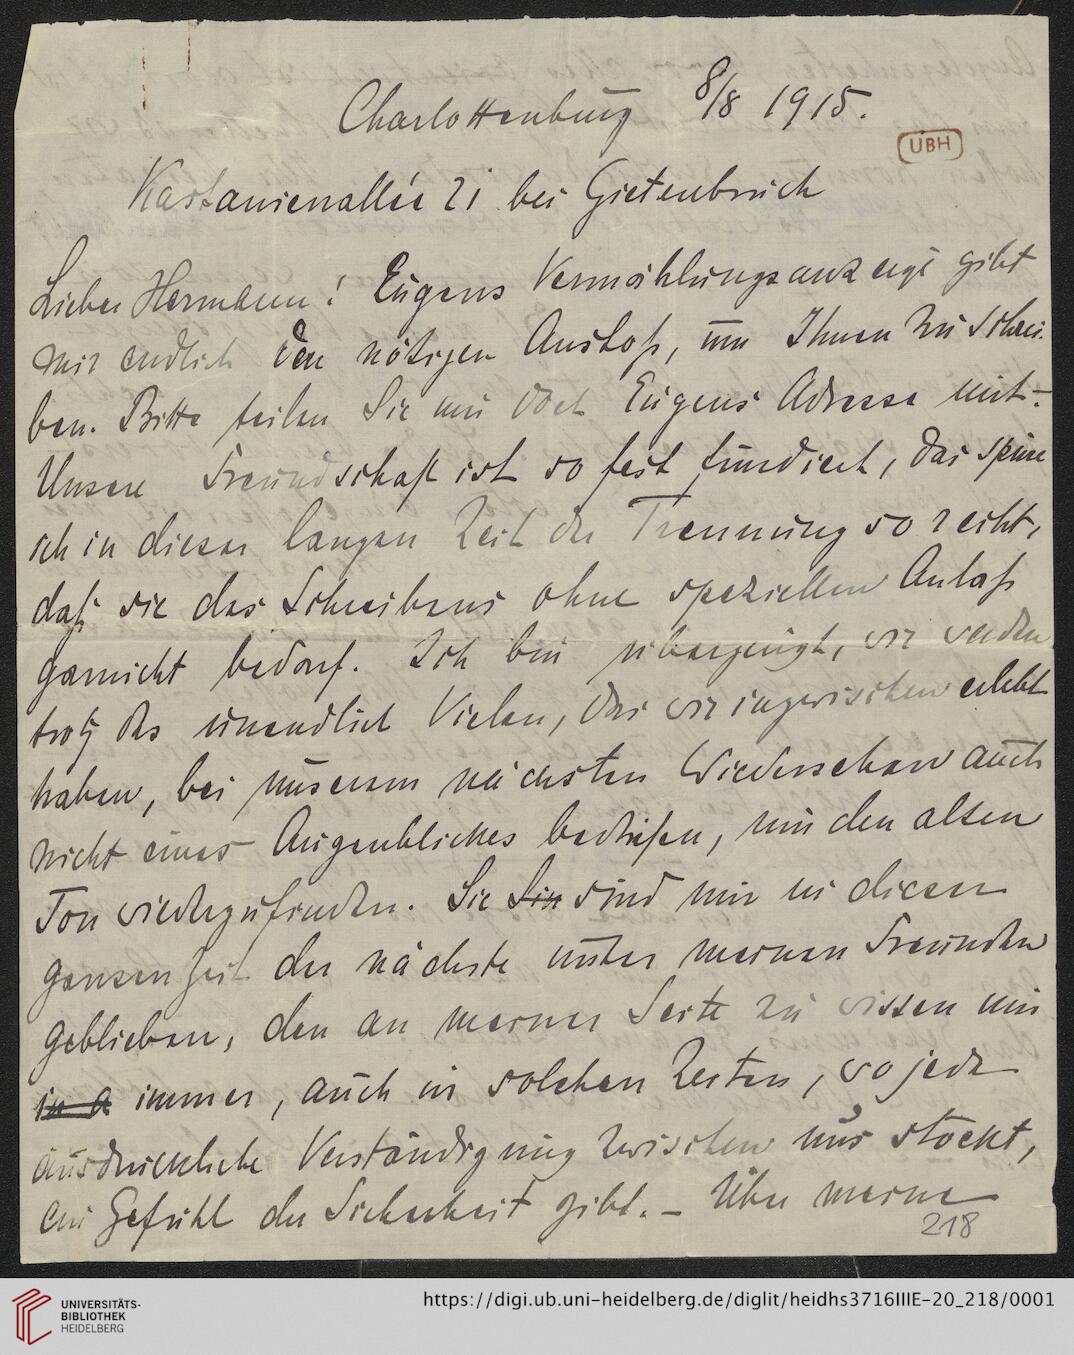 Charlottenburg 8/8 1915.
UBH
Kastanienallée 21 bei Gietenbruch
Lieber Hermann! Eugens Vermählungsanzeige gibt
mir endlich den nötigen Anstoß, um Ihnen zu schrei-
ben. Bitte teilen Sie mir doch Eugens Adresse mit.-
Unsere Freundschaft ist so fest fundiert, das spüre
ich in dieser langen Zeit der Trennung so recht,
daß sie des Schreibens ohne speziellen Anlaß
garnicht bedarf. Ich bin überzeugt, wir werden
trotz des unendlich Vielen, das wir inzwischen erlebt
haben, bei unserem nächsten Wiedersehen auch
nicht eines Augenblickes bedürfen, um den alten
Ton wiederzufinden. Sie Sin sind mir in dieser
ganzen Zeit der nächste unter meinen Freunden
geblieben, den an meiner Seite zu wissen mir
in a immer, auch in solchen Zeiten, wo jede
ausdrückliche Verständigung zwischen uns stockt,
ein Gefühl der Sicherheit gibt. – Über meine
218
UNIVERSITÄTS-
BIBLIOTHEK
HEIDELBERG
https://digi.ub.uni-heidelberg.de/diglit/heidhs3716IIIE-20_218/0001